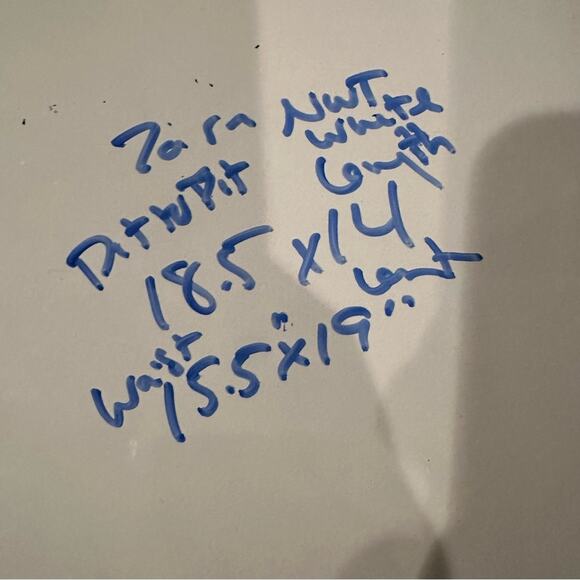 Zara NWT
White
Pit to Pit Length
18.5 x 14
Waist Lengt
15.5" x 19"